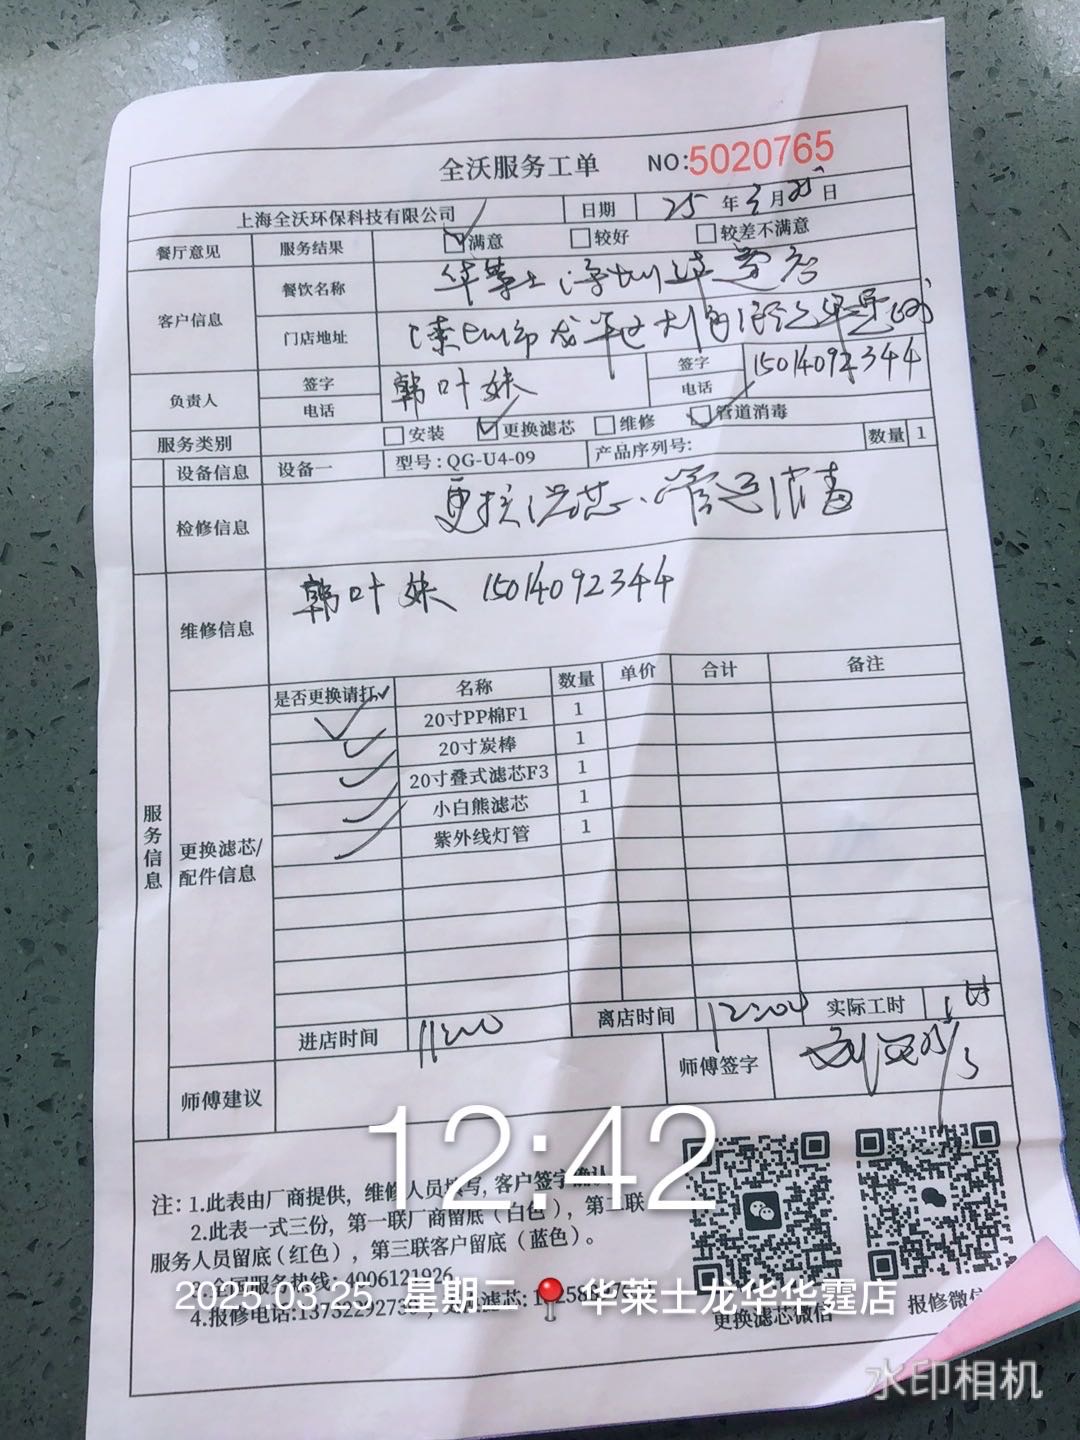 全沃服务工单 NO:5020765
上海全沃环保科技有限公司 日期 25年3月25日
餐厅意见 服务结果 满意 较好 较差不满意
客户信息 餐饮名称 华莱士深圳华霆店
门店地址 深圳市龙华区
负责人 签字 电话 韩叶妹 签字 电话 15014092344
服务类别 安装 更换滤芯 维修 管道消毒
设备信息 设备一 型号:QG-U4-09 产品序列号: 数量 1
检修信息 更换滤芯、管道消毒
维修信息 韩叶妹 15014092344
服务信息
更换滤芯/配件信息
是否更换请打✓ 名称 数量 单价 合计 备注
✓ 20寸PP棉F1 1
✓ 20寸炭棒 1
✓ 20寸叠式滤芯F3 1
✓ 小白熊滤芯 1
✓ 紫外线灯管 1
进店时间 11:20 离店时间 12:04 实际工时
师傅建议 师傅签字
12:42
注: 1.此表由厂商提供, 维修人员填写, 客户签字确认
2.此表一式三份, 第一联厂商留底(白色), 第二联
服务人员留底(红色), 第三联客户留底(蓝色)。
全国服务热线:4006121926
4.报修电话:
2025 03 25 星期二 华莱士龙华华霆店
更换滤芯微信 报修微信
水印相机